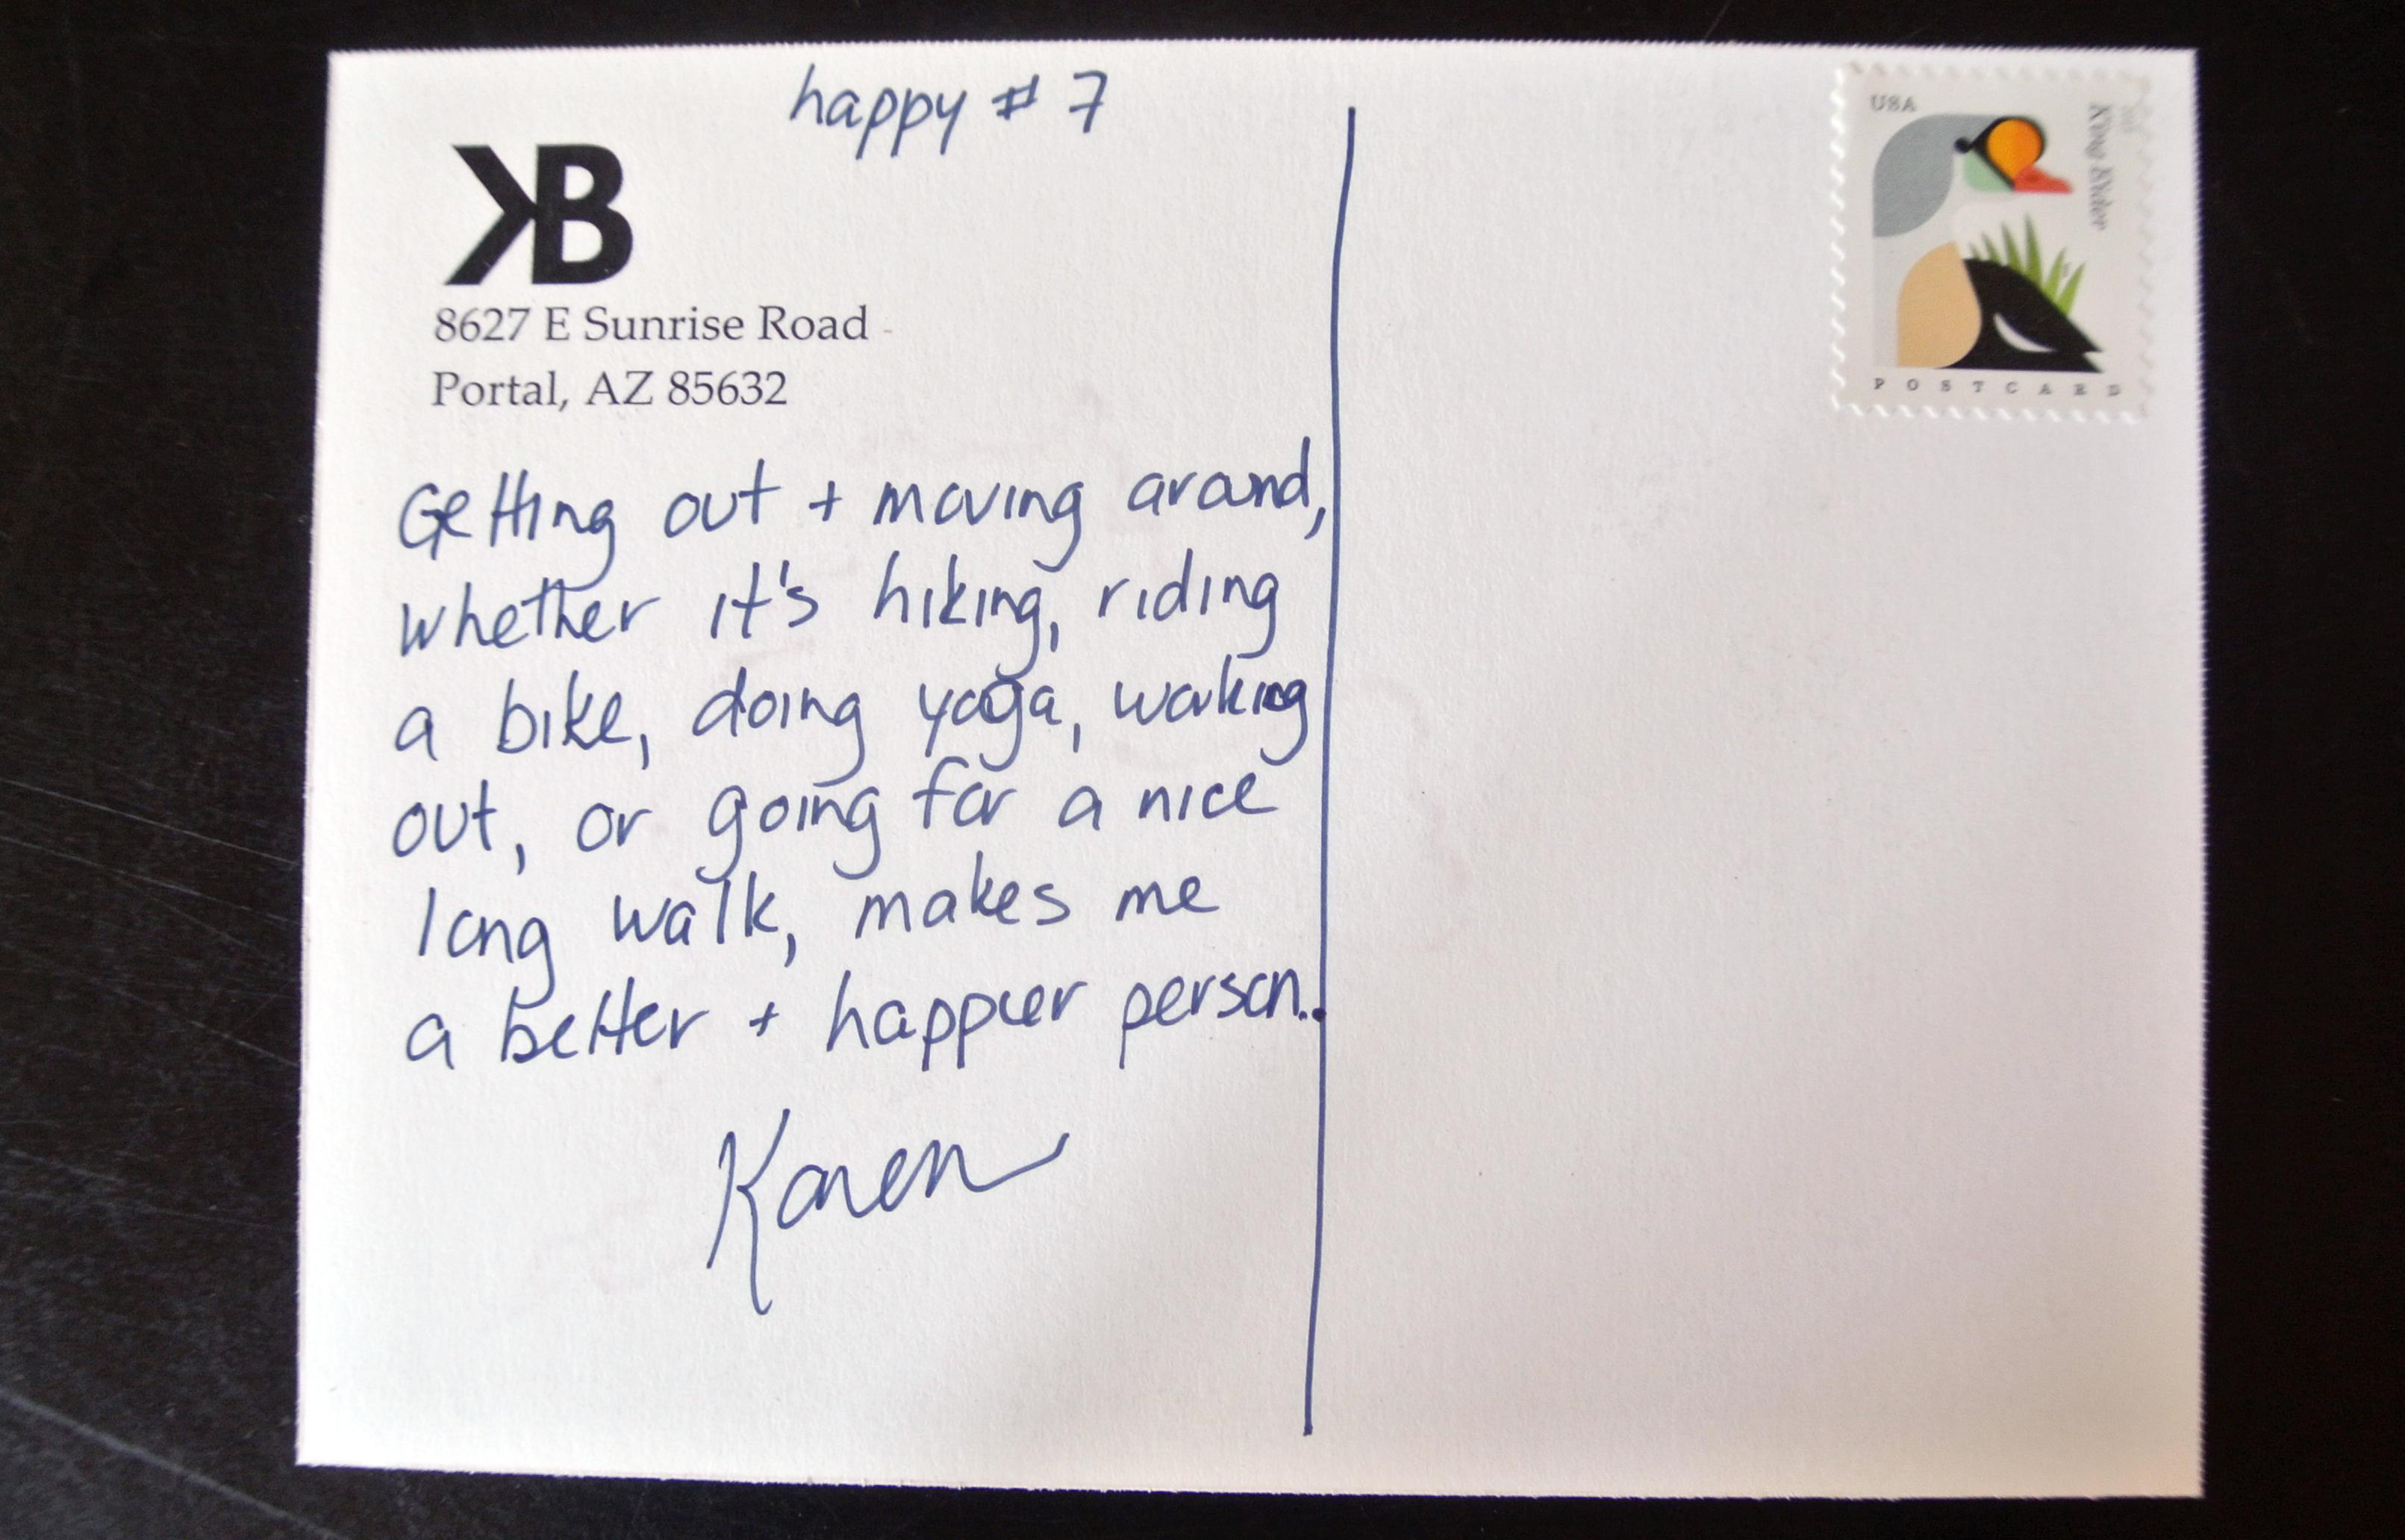 happy # 7
KB
8627 E Sunrise Road
Portal, AZ 85632
Getting out + moving around,
whether it's hiking, riding
a bike, doing yoga, working
out, or going for a nice
long walk, makes me
a better + happier person.
Karen
USA
King Eider
POSTCARD